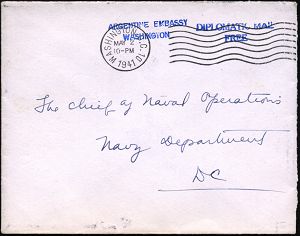 ARGENTINE EMBASSY
WASHINGTON
DIPLOMATIC MAIL
FREE
WASHINGTON, D.C.
MAY 2
10-PM
1941
The Chief of Naval Operations
Navy Department
DC